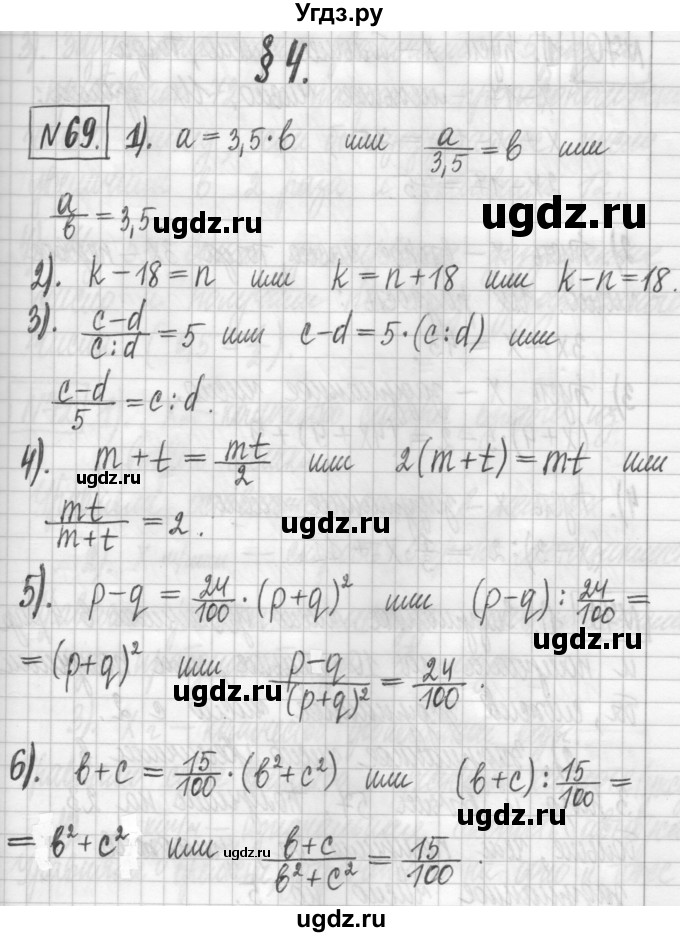 Угдз.ру
§ 4.
№69. 1). a = 3,5 · b или a/3,5 = b или
a/b = 3,5 ugdz.ru
ugdz.ru
2). k – 18 = n или k = n + 18 или k – n = 18.
3). (c–d)/(c:d) = 5 или c–d = 5·(c:d) или
(c–d)/5 = c:d.
ugdz.ru
4). m + t = mt/2 или 2(m+t) = mt или
ugdz.ru
mt/(m+t) = 2.
ugdz.ru
5). p–q = 24/100 · (p+q)² или (p–q) : 24/100 =
ugdz.ru
= (p+q)² или (p–q)/(p+q)² = 24/100.
ugdz.ru
6). b+c = 15/100 · (b²+c²) или (b+c) : 15/100 =
ugdz.ru
= b²+c² или ugdz.ru (b+c)/(b²+c²) = 15/100.
ugdz.ru
ugdz.ru